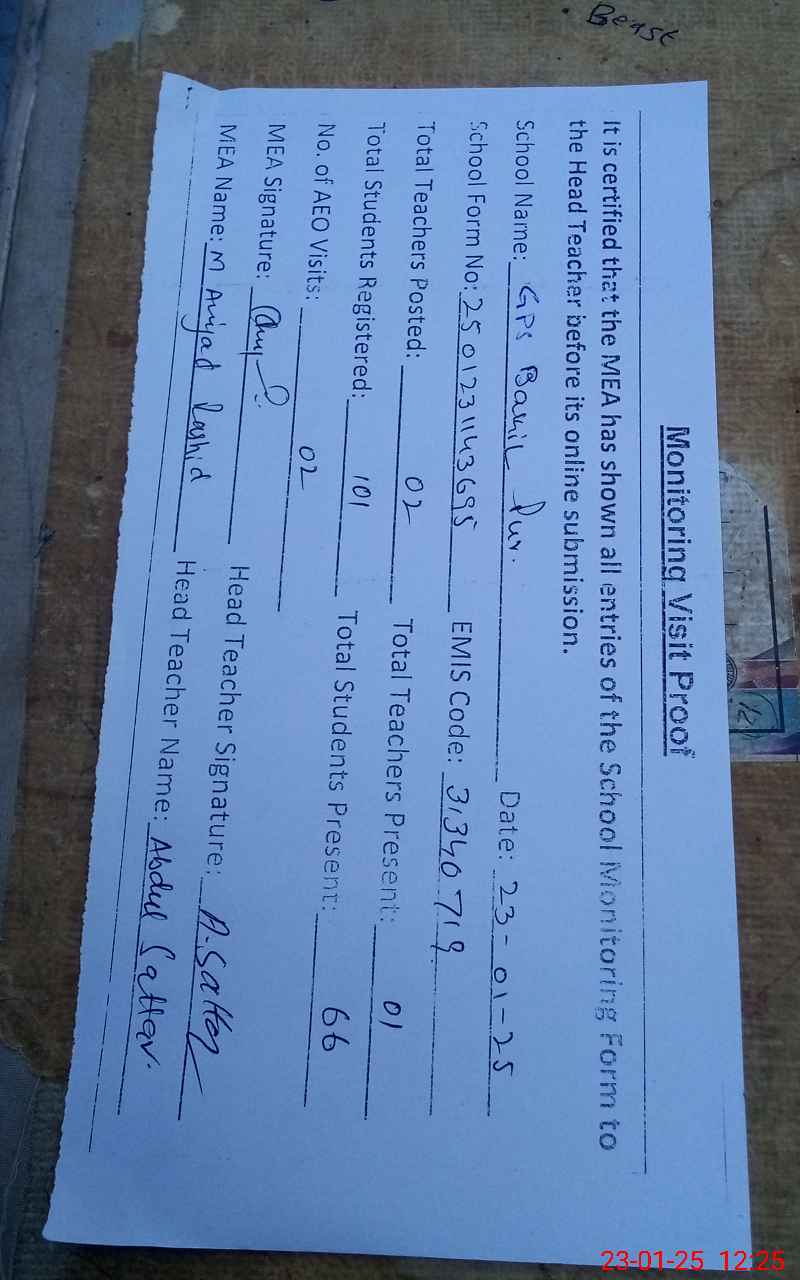 Beast
Monitoring Visit Proof
It is certified that the MEA has shown all entries of the School Monitoring Form to
the Head Teacher before its online submission.
School Name: GPS Bakil Pur. Date: 23-01-25
School Form No: 2501231143695 EMIS Code: 31340719
Total Teachers Posted: 02 Total Teachers Present: 01
Total Students Registered: 101 Total Students Present: 66
No. of AEO Visits: 02
MEA Signature: Head Teacher Signature: A.Sattar
MEA Name: M Amjad Rashid Head Teacher Name: Abdul Sattar.
23-01-25 12:25